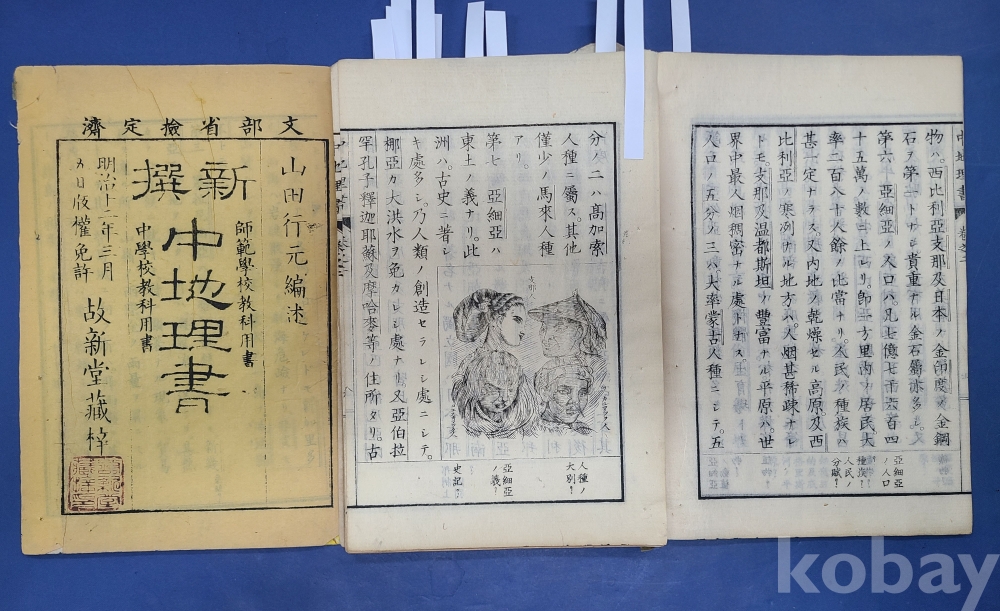 文部省檢定濟
山田行元編述
新撰
師範學校教科用書
中地理書
中學校教科用書
明治十二年三月
日版權免許
故新堂藏梓
中地理書
物ハ。西比利亞支那及日本ノ金。印度ノ金鋼
石ヲ第一トナシ貴重ナル金石屬亦多シ。
第六 亞細亞ノ人口ハ凡七億七千六百四
十五萬ノ數ニ上レリ。即一方里內ノ居民。大
率二百八十人餘ノ比當ナリ。人民ノ種族ハ
甚一定ナラス又內地ノ乾燥セル高原及西
比利亞ノ寒冽ナル地方ハ。人烟甚稀疎ナレ
トモ。支那及温都斯坦ノ豐富ナル平原ハ。世
界中最人烟稠密ナル處トナス。
人口ノ五分ノ三ハ大率蒙古人種ニシテ。五
亞細亞
ノ人口
種族?
人民ノ
分賦?
分ノ二ハ高加索
人種ニ屬ス。其他
僅少ノ馬來人種
アリ。
第七 亞細亞ハ
東土ノ義ナリ。此
洲ハ。古史ニ著シ
キ處多シ。乃人類ノ創造セラレシ處ニシテ。
挪亞カ大洪水ヲ免カレシ處ナリ又亞伯拉
罕孔子釋迦耶蘇及摩哈麥等ノ住所タリ。古
人種ノ
大別?
亞細亞
ノ義?
史記?
kobay